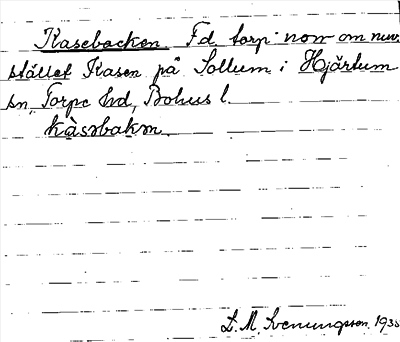 Kasebacken. Fd. torp norr om nuv.
stället Kasen på Sollum i Hjärtum
sn, Torpe hd, Bohus l.
kàsəbakɷn.
L. M. Svenungsson. 193